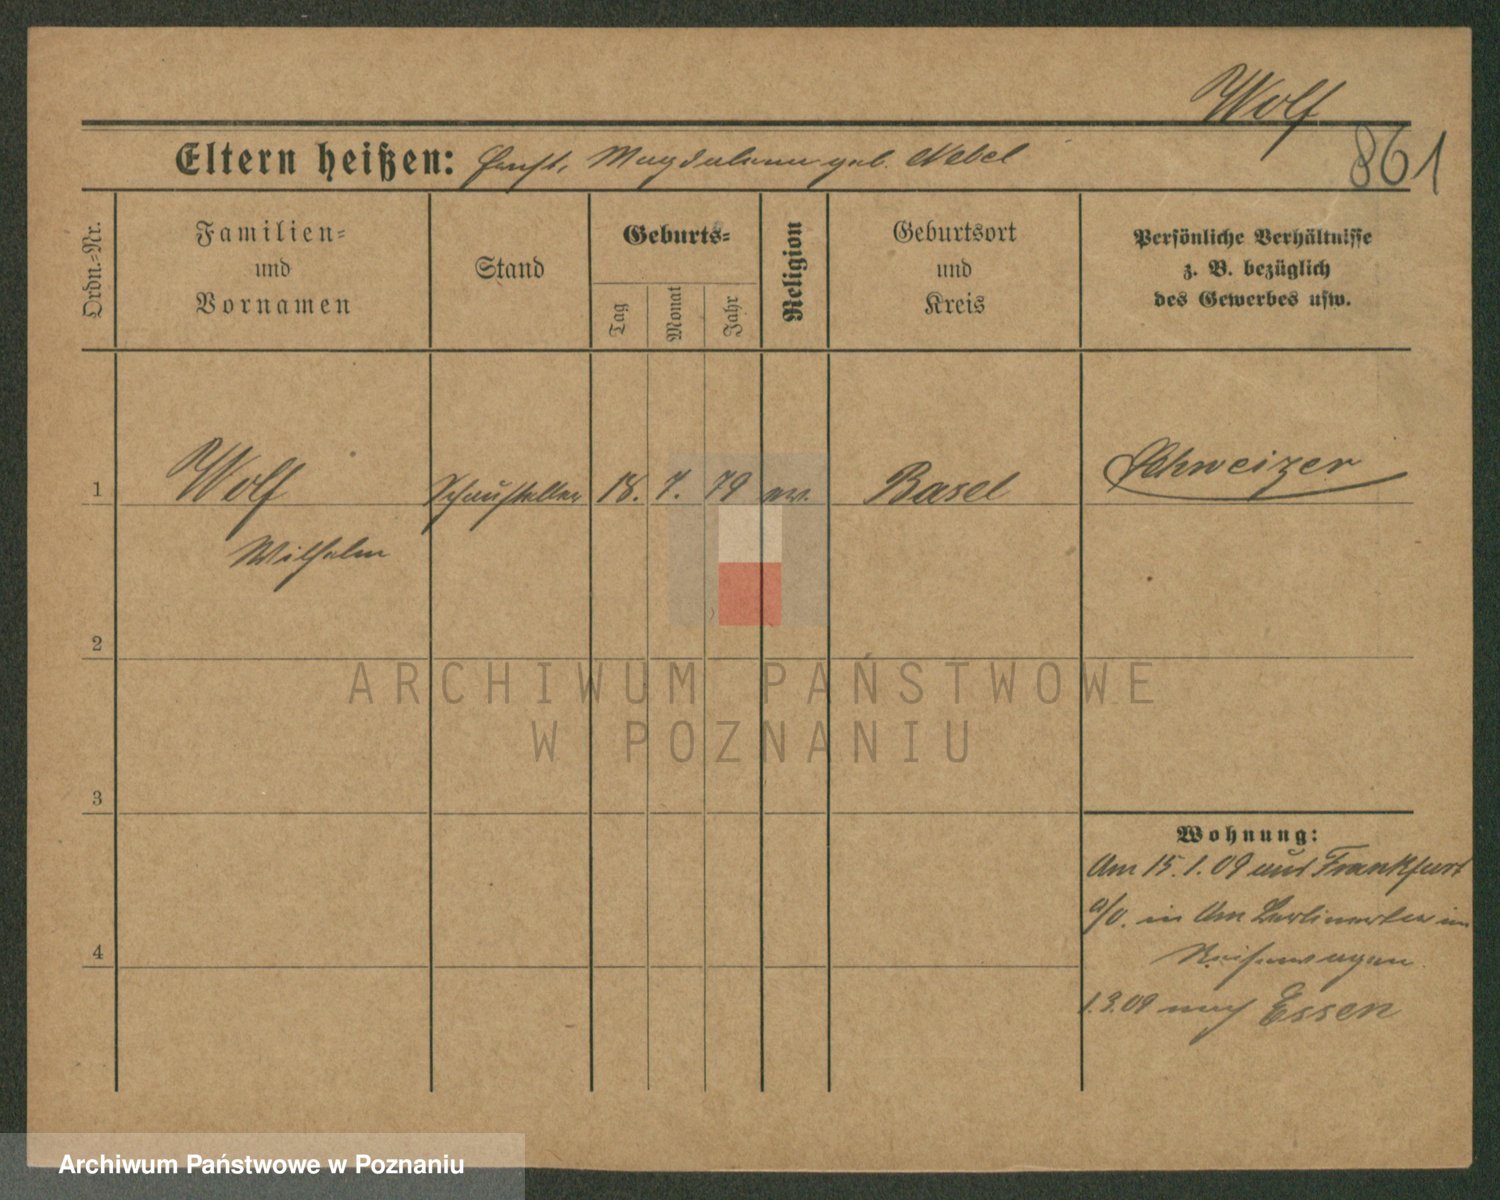 Wolf
861
Eltern heißen: Magdalena geb. Nebel
Ordn.-Nr.
Familien-
und
Vornamen
Stand
Geburts-
Tag
Monat
Jahr
Religion
Geburtsort
und
Kreis
Persönliche Verhältnisse
z. B. bezüglich
des Gewerbes usw.
1 Wolf Schausteller 18. 7. 79 ev. Basel Schweizer
Wilhelm
2
ARCHIWUM PAŃSTWOWE
W POZNANIU
3
Wohnung:
Am 15.1.09 aus Frankfurt
a/O. in Am Berlinertor im
Reisewagen
4
1.3.09 nach Essen
Archiwum Państwowe w Poznaniu